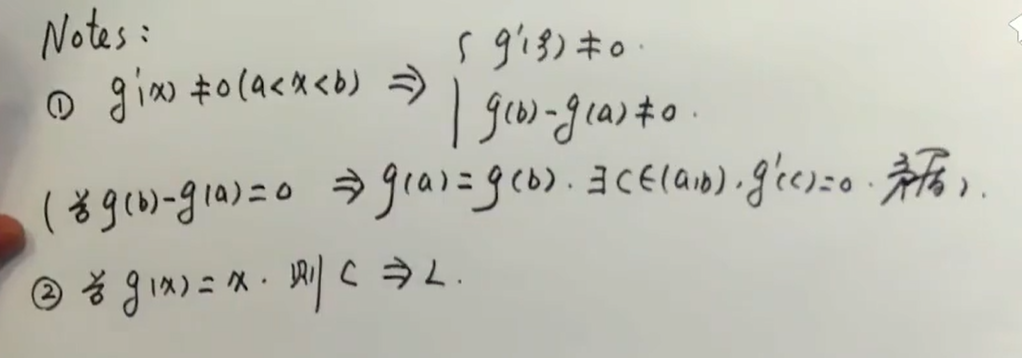 Notes:
① g'(x) ≠ 0 (a<x<b) ⇒ { g'(ξ) ≠ 0.
g(b)-g(a) ≠ 0.
(若 g(b)-g(a)=0 ⇒ g(a)=g(b). ∃c∈(a,b), g'(c)=0. 矛盾).
② 若 g(x)=x. 则 C ⇒ L.